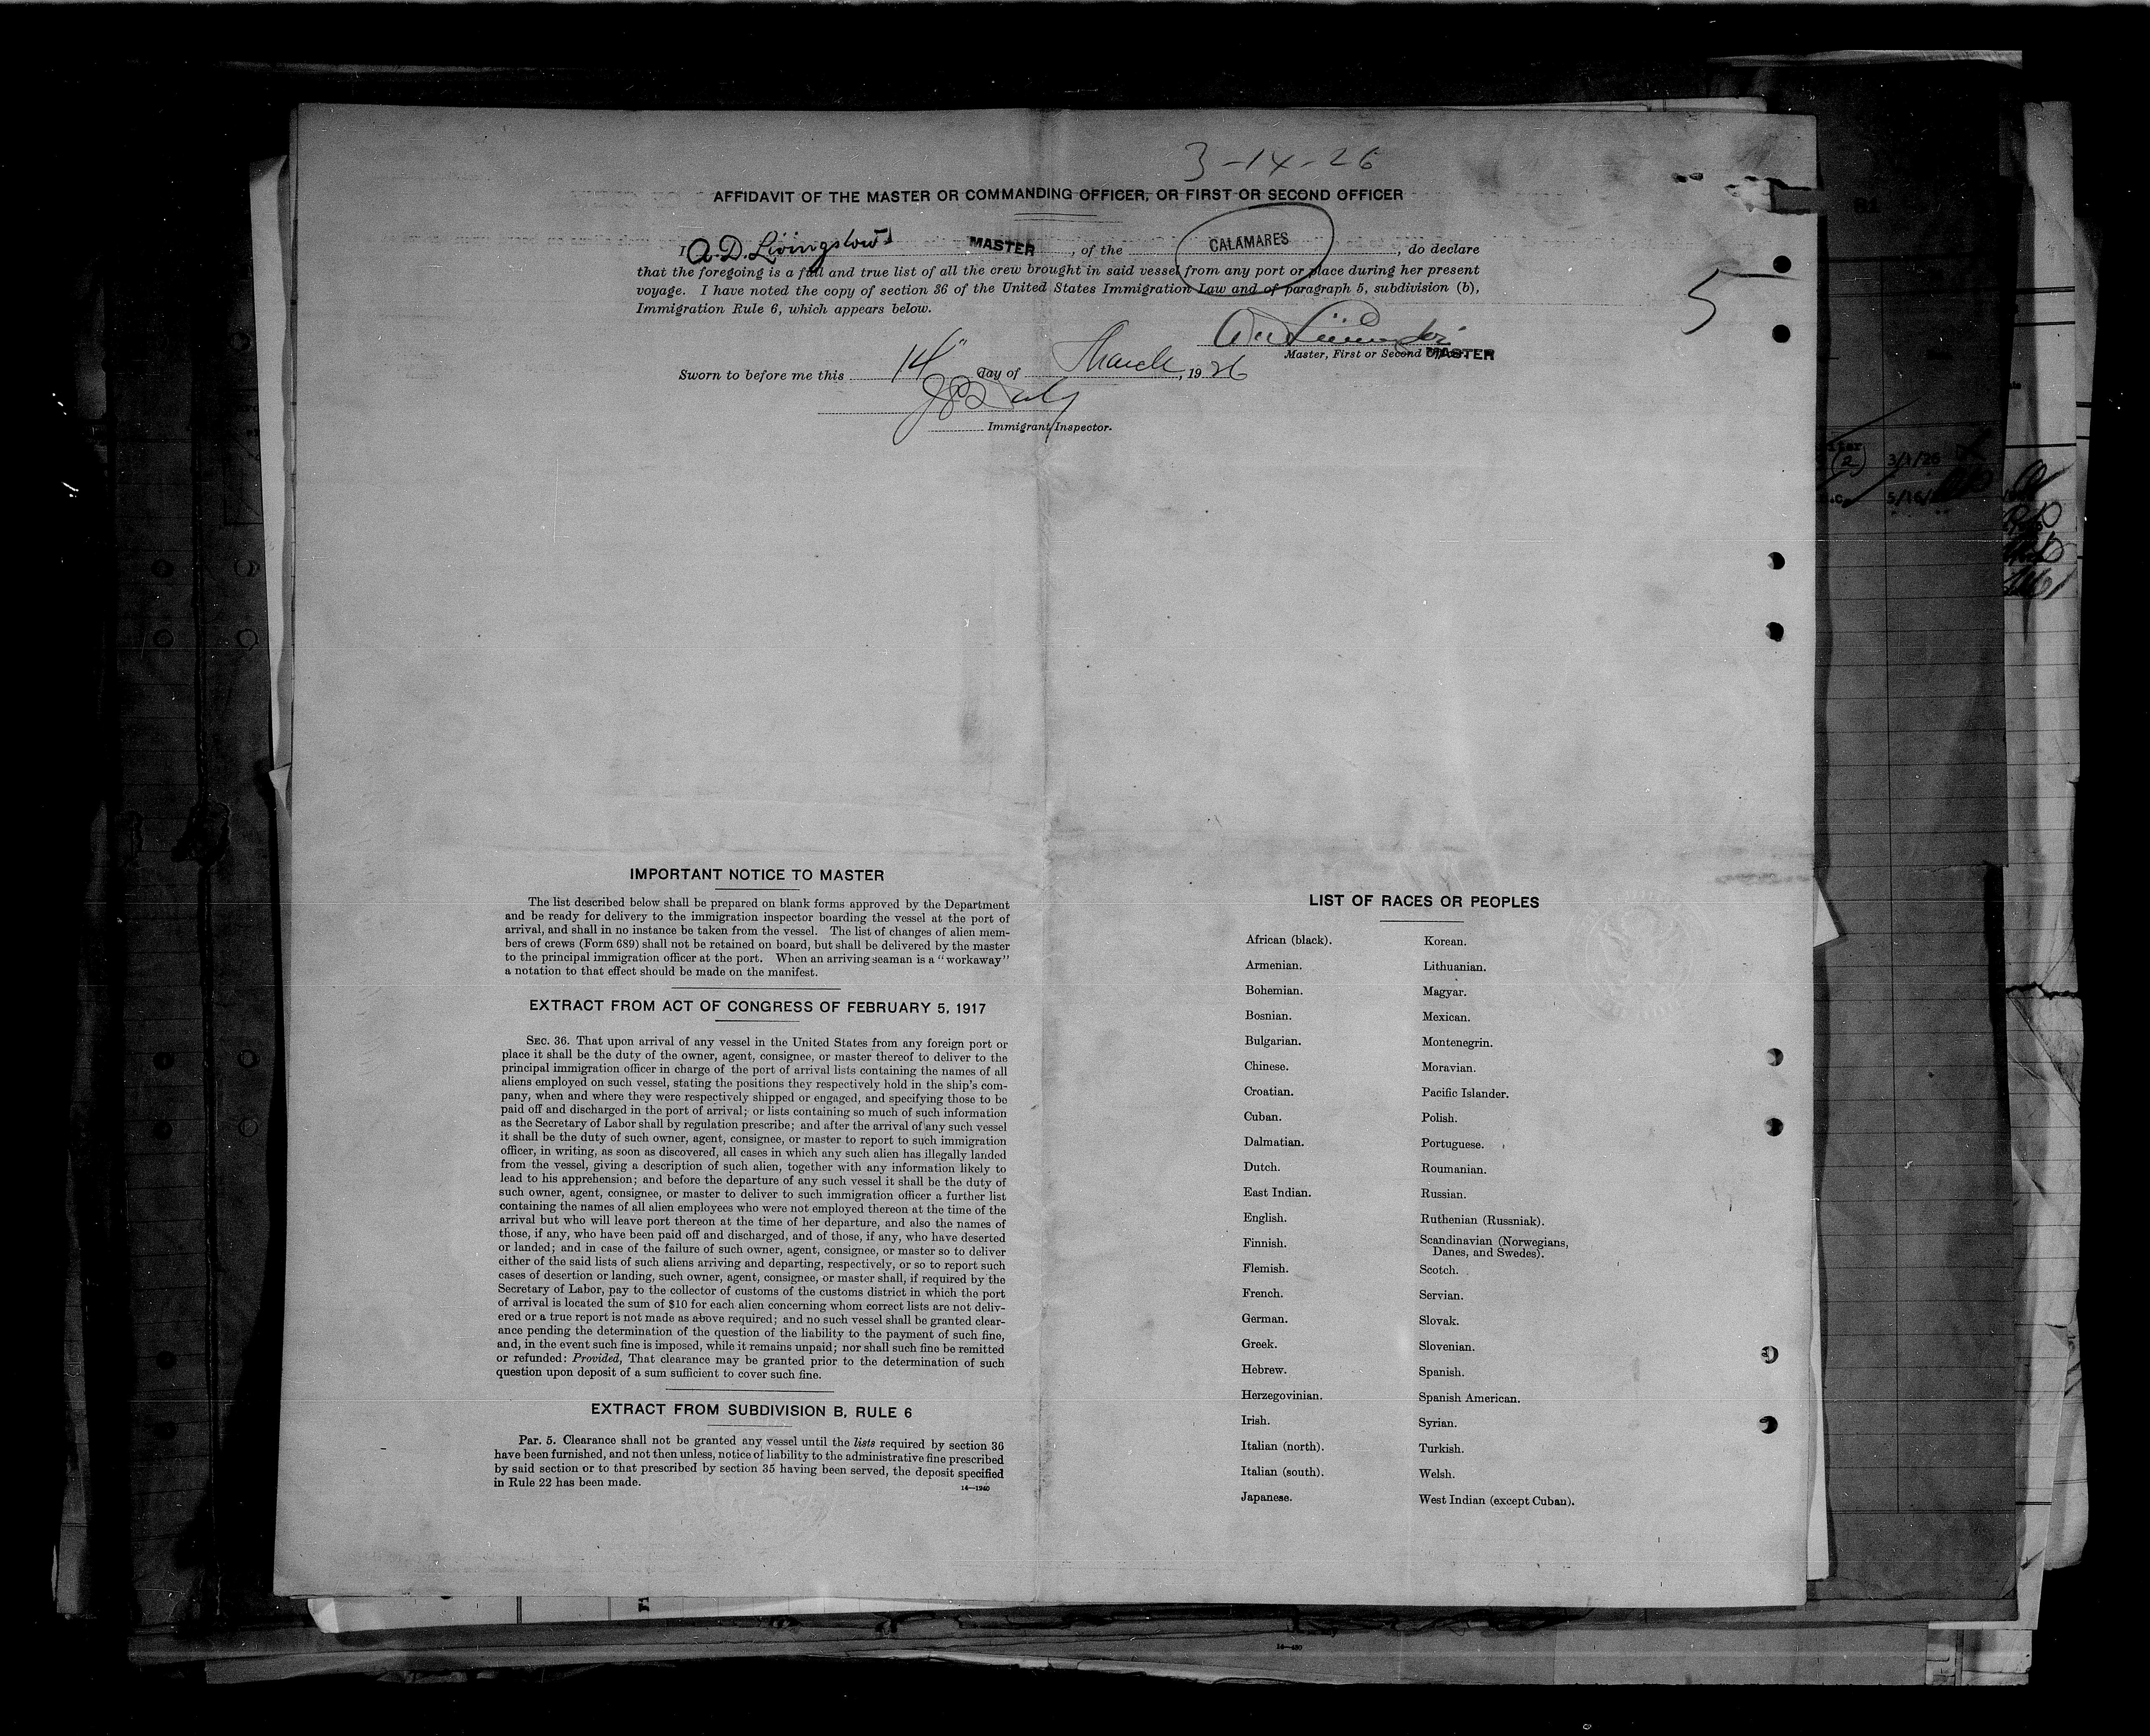 3-14-26
AFFIDAVIT OF THE MASTER OR COMMANDING OFFICER, OR FIRST OR SECOND OFFICER
I A. D. Livingstone MASTER, of the CALAMARES, do declare
that the foregoing is a full and true list of all the crew brought in said vessel from any port or place during her present
voyage. I have noted the copy of section 36 of the United States Immigration Law and of paragraph 5, subdivision (b),
Immigration Rule 6, which appears below.
5
Master, First or Second MASTER
Sworn to before me this 14" day of March, 1926
Immigrant Inspector.
IMPORTANT NOTICE TO MASTER
The list described below shall be prepared on blank forms approved by the Department
and be ready for delivery to the immigration inspector boarding the vessel at the port of
arrival, and shall in no instance be taken from the vessel. The list of changes of alien mem-
bers of crews (Form 689) shall not be retained on board, but shall be delivered by the master
to the principal immigration officer at the port. When an arriving seaman is a "workaway"
a notation to that effect should be made on the manifest.
EXTRACT FROM ACT OF CONGRESS OF FEBRUARY 5, 1917
SEC. 36. That upon arrival of any vessel in the United States from any foreign port or
place it shall be the duty of the owner, agent, consignee, or master thereof to deliver to the
principal immigration officer in charge of the port of arrival lists containing the names of all
aliens employed on such vessel, stating the positions they respectively hold in the ship's com-
pany, when and where they were respectively shipped or engaged, and specifying those to be
paid off and discharged in the port of arrival; or lists containing so much of such information
as the Secretary of Labor shall by regulation prescribe; and after the arrival of any such vessel
it shall be the duty of such owner, agent, consignee, or master to report to such immigration
officer, in writing, as soon as discovered, all cases in which any such alien has illegally landed
from the vessel, giving a description of such alien, together with any information likely to
lead to his apprehension; and before the departure of any such vessel it shall be the duty of
such owner, agent, consignee, or master to deliver to such immigration officer a further list
containing the names of all alien employees who were not employed thereon at the time of the
arrival but who will leave port thereon at the time of her departure, and also the names of
those, if any, who have been paid off and discharged, and of those, if any, who have deserted
or landed; and in case of the failure of such owner, agent, consignee, or master so to deliver
either of the said lists of such aliens arriving and departing, respectively, or so to report such
cases of desertion or landing, such owner, agent, consignee, or master shall, if required by the
Secretary of Labor, pay to the collector of customs of the customs district in which the port
of arrival is located the sum of $10 for each alien concerning whom correct lists are not deliv-
ered or a true report is not made as above required; and no such vessel shall be granted clear-
ance pending the determination of the question of the liability to the payment of such fine,
and, in the event such fine is imposed, while it remains unpaid; nor shall such fine be remitted
or refunded: Provided, That clearance may be granted prior to the determination of such
question upon deposit of a sum sufficient to cover such fine.
EXTRACT FROM SUBDIVISION B, RULE 6
Par. 5. Clearance shall not be granted any vessel until the lists required by section 36
have been furnished, and not then unless, notice of liability to the administrative fine prescribed
by said section or to that prescribed by section 35 having been served, the deposit specified
in Rule 22 has been made.
14—1240
LIST OF RACES OR PEOPLES
African (black).
Armenian.
Bohemian.
Bosnian.
Bulgarian.
Chinese.
Croatian.
Cuban.
Dalmatian.
Dutch.
East Indian.
English.
Finnish.
Flemish.
French.
German.
Greek.
Hebrew.
Herzegovinian.
Irish.
Italian (north).
Italian (south).
Japanese.
Korean.
Lithuanian.
Magyar.
Mexican.
Montenegrin.
Moravian.
Pacific Islander.
Polish.
Portuguese.
Roumanian.
Russian.
Ruthenian (Russniak).
Scandinavian (Norwegians,
Danes, and Swedes).
Scotch.
Servian.
Slovak.
Slovenian.
Spanish.
Spanish American.
Syrian.
Turkish.
Welsh.
West Indian (except Cuban).
3/1/26